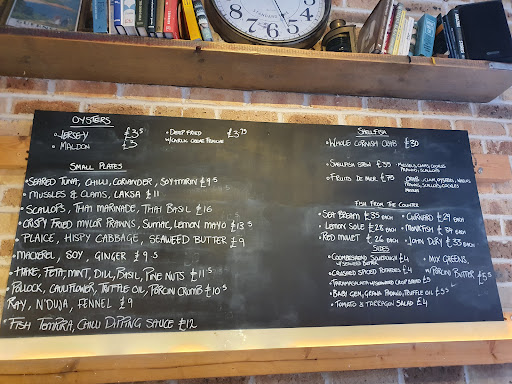 OYSTERS
• JERSEY £3.5
• MALDON £3
• DEEP FRIED £3.75
W/GARLIC CREME FRAICHE
SMALL PLATES
• SEARED TUNA, CHILLI, CORIANDER, SOY + MIRIN £9.5
• MUSSLES & CLAMS, LAKSA £11
• SCALLOPS, THAI MARINADE, THAI BASIL £16
• CRISPY FRIED MYLOR PRAWNS, SUMAC, LEMON MAYO £13.5
• PLAICE, HISPY CABBAGE, SEAWEED BUTTER £9
MACKEREL, SOY, GINGER £9.5
• HAKE, FETA, MINT, DILL, BASIL, PINE NUTS £11.5
• POLLOCK, CAULIFLOWER, TRUFFLE OIL, PORCINI CRUMB £10.5
RAY, N'DUJA, FENNEL £9
• FISH TEMPURA, CHILLI DIPPING SAUCE £12
SHELLFISH
• WHOLE CORNISH CRAB £30
• SHELLFISH STEW £35 MUSSELS, CLAMS, COCKLES
PRAWNS, SCALLOPS
• FRUITS DE MER £75 CRAB, CLAM, OYSTERS, WHELKS
PRAWNS, SCALLOPS, COCKLES
MUSSELS
FISH FROM THE COUNTER
• SEA BREAM £35 EACH
• LEMON SOLE £28 EACH
• RED MULLET £26 EACH
• GURNARD £29 EACH
• MONKFISH £34 EACH
• JOHN DORY £33 EACH
SIDES
• COOMBESHEAD SOURDOUGH £4
W/SEAWEED BUTTER
• CRUSHED SPICED POTATOES £4
• TARAMASALATA W/SEAWEED CRISP BREAD £5
• BABY GEM, GRANA PADANO, TRUFFLE OIL £5.5
• TOMATO & TARRAGON SALAD £4
• MIX GREENS,
W/PORCINI BUTTER £5.5